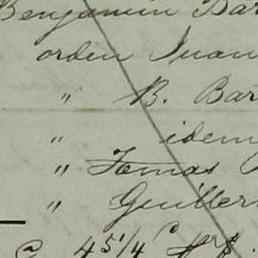 Benjamin Bar
orden Juan
" B. Bar
" idem
" Tomas
" Guiller
4 5 1/4